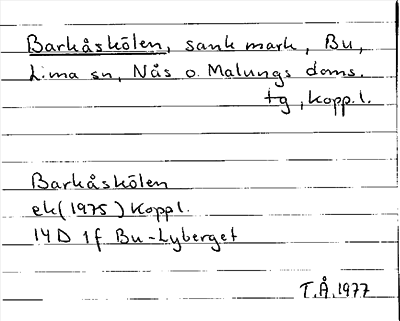 Barkåskölen, sank mark, Bu,
Lima sn, Nås o. Malungs doms.
tg, Koppl.
Barkåskölen
ek (1975) Koppl.
14D 1f Bu-Lyberget
T.Å. 1977